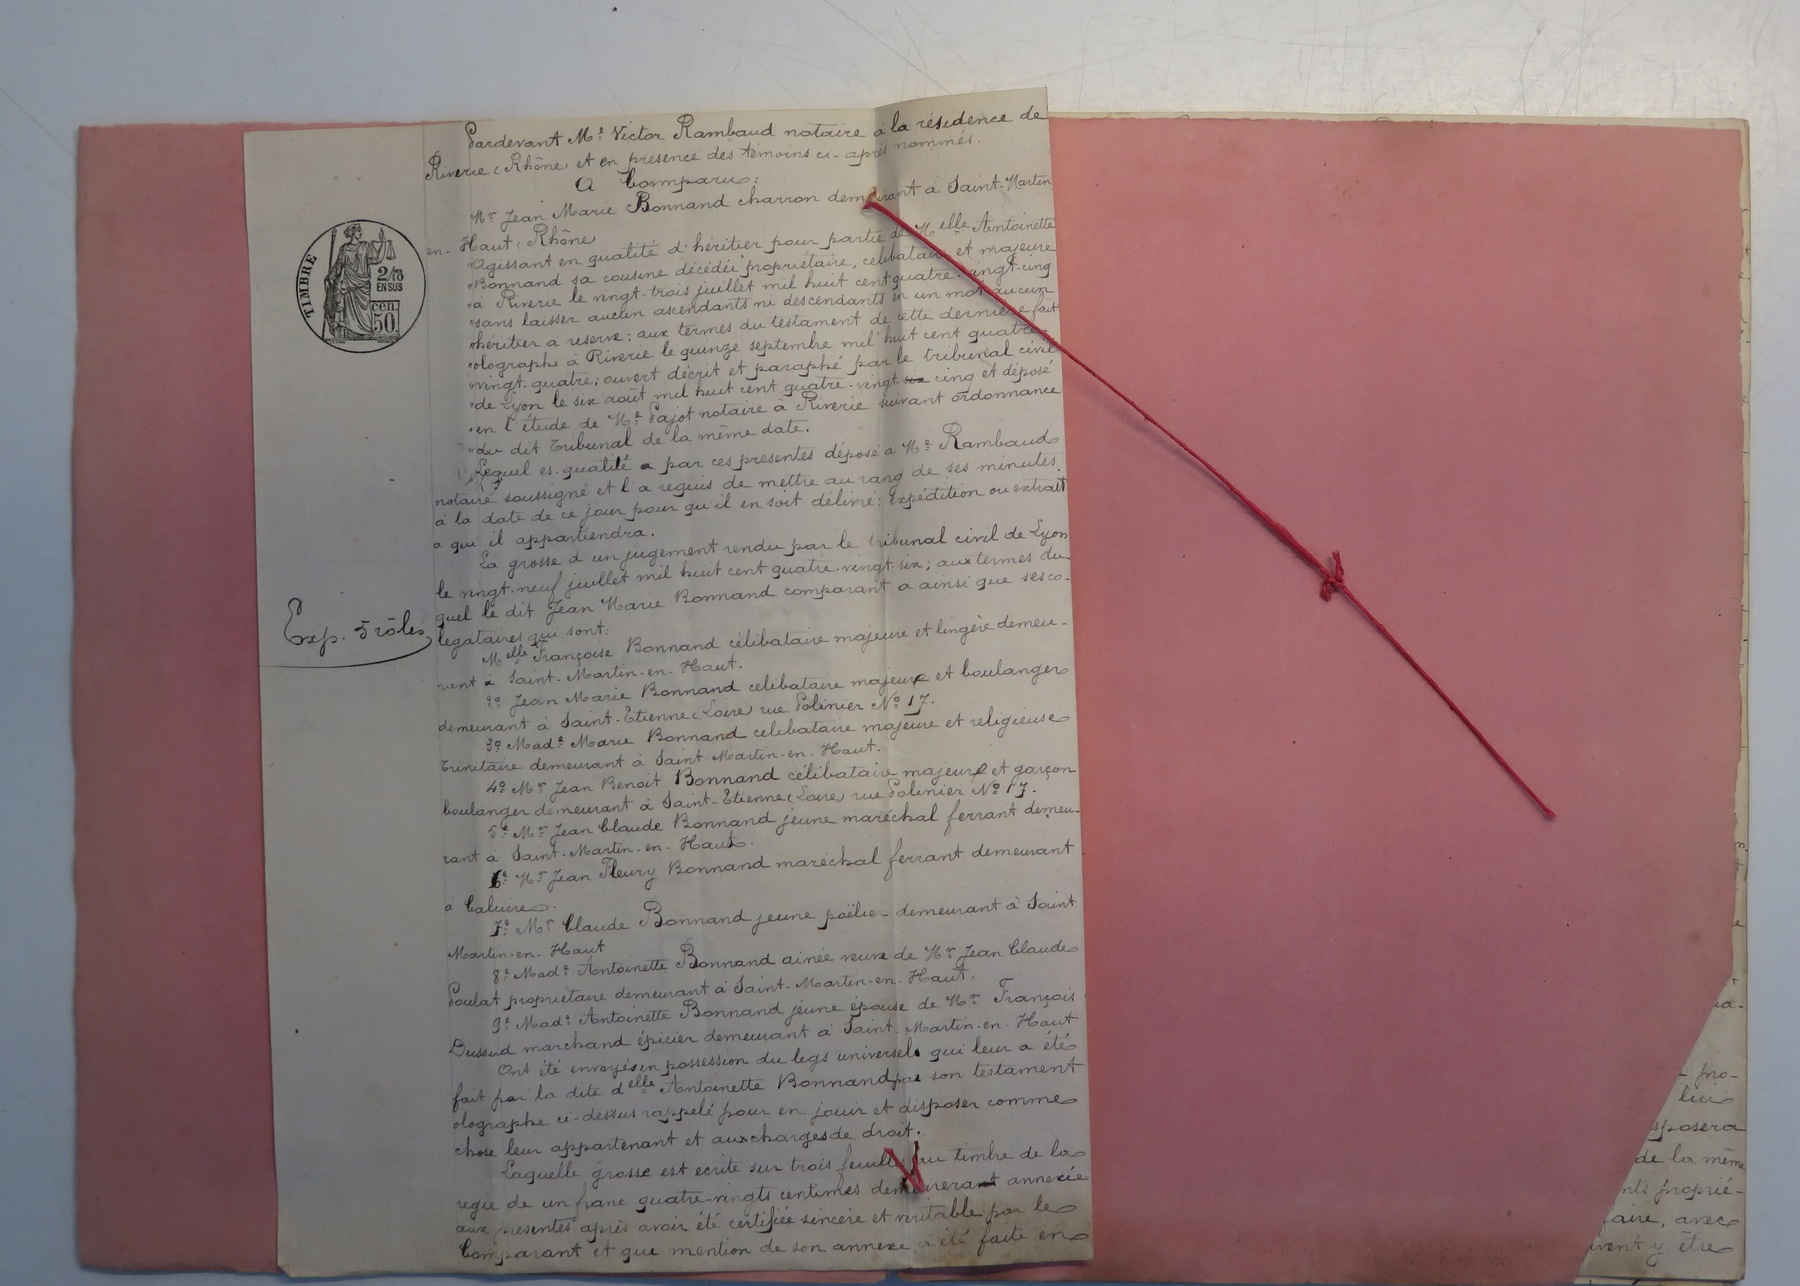 Pardevant Me Victor Rambaud notaire a la résidence de
Riverie (Rhône) et en presence des témoins ci-après nommés.
A Comparu:
Mr Jean Marie Bonnand charron demeurant a Saint-Martin
en-Haut (Rhône)
"Agissant en qualité d'héritier pour partie de Melle Antoinette
"Bonnand sa cousine décédée propriétaire, célibataire et majeure
"à Riverie le vingt-trois juillet mil huit cent quatre-vingt-cinq
"sans laisser aucun ascendants ni descendants en un mot aucun
"héritier a reserve; aux termes du testament de cette dernière fait
"olographe à Riverie le quinze septembre mil huit cent quatre-
"vingt-quatre; ouvert décrit et paraphé par le tribunal civil
"de Lyon le six août mil huit cent quatre-vingt six cinq et déposé
"en l'étude de Me Pajot notaire à Riverie suivant ordonnance
"du dit Tribunal de la même date.
Lequel es-qualité a par ces presentes déposé à Me Rambaud
notaire soussigné et l'a requis de mettre au rang de ses minutes
à la date de ce jour pour qu'il en soit délivré: expédition ou extrait
a qui il appartiendra.
La grosse d'un jugement rendu par le tribunal civil de Lyon
le vingt-neuf juillet mil huit cent quatre-vingt-six; aux termes du-
quel le dit Jean Marie Bonnand comparant a ainsi que ses co-
Exp. 5 rôles
légataires qui sont:
Melle Françoise Bonnand célibataire majeure et lingère demeu-
rant à Saint-Martin-en-Haut.
2o Jean Marie Bonnand célibataire majeur et boulanger
demeurant à Saint-Etienne (Loire) rue Polinier No 17.
3o Made Marie Bonnand célibataire majeure et religieuse
Trinitaire demeurant à Saint-Martin-en-Haut.
4o Mr Jean Benoit Bonnand célibataire majeur et garçon
boulanger demeurant à Saint-Etienne (Loire) rue Polinier No 17.
5o Mr Jean Claude Bonnand jeune maréchal ferrant demeu-
rant à Saint-Martin-en-Haut.
6o Mr Jean Fleury Bonnand maréchal ferrant demeurant
à Caluire.
7o Mr Claude Bonnand jeune poëlier demeurant à Saint
Martin-en-Haut
8o Made Antoinette Bonnand ainée veuve de Mr Jean Claude
Poulat propriétaire demeurant à Saint-Martin-en-Haut.
9o Made Antoinette Bonnand jeune épouse de Mr François
Dussud marchand épicier demeurant à Saint-Martin-en-Haut
Ont été envoyés en possession du legs universel qui leur a été
fait par la dite delle Antoinette Bonnand par son testament
olographe ci-dessus rappelé pour en jouir et disposer comme
chose leur appartenant et aux charges de droit.
Laquelle grosse est ecrite sur trois feuilles au timbre de la
regie de un franc quatre-vingts centimes demeurera annexée
aux presentes après avoir été certifiée sincère et veritable par le
Comparant et que mention de son annexe a été faite en
TIMBRE
2/10
EN SUS
cen.
50
pro-
lieu
sposera
de la même
nts proprié-
faire, avec
uvent y être